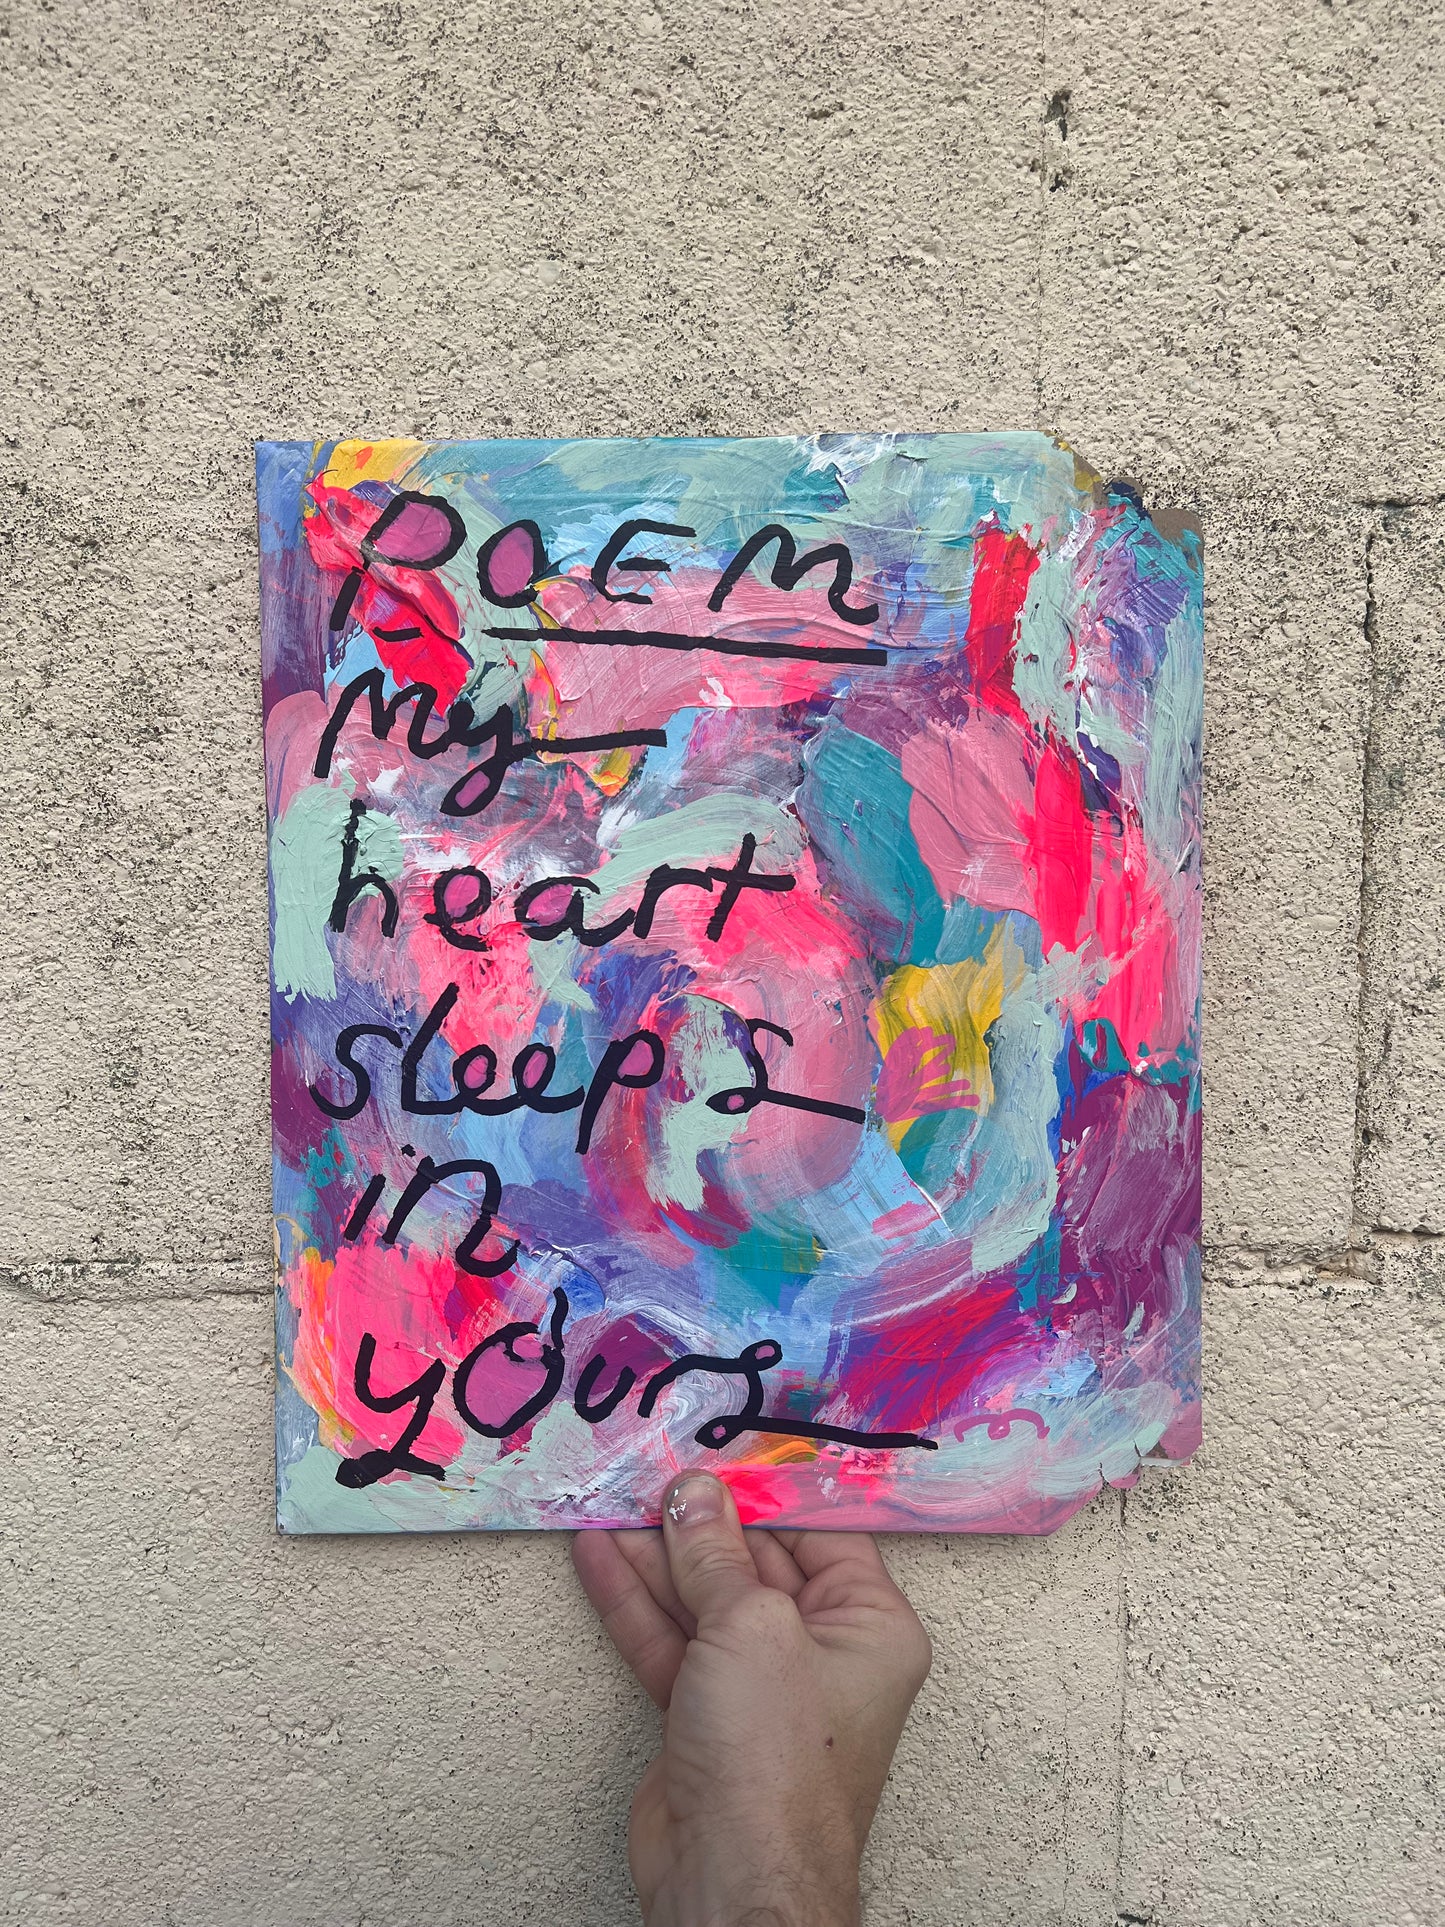 POEM
My
heart
sleeps
in
yours